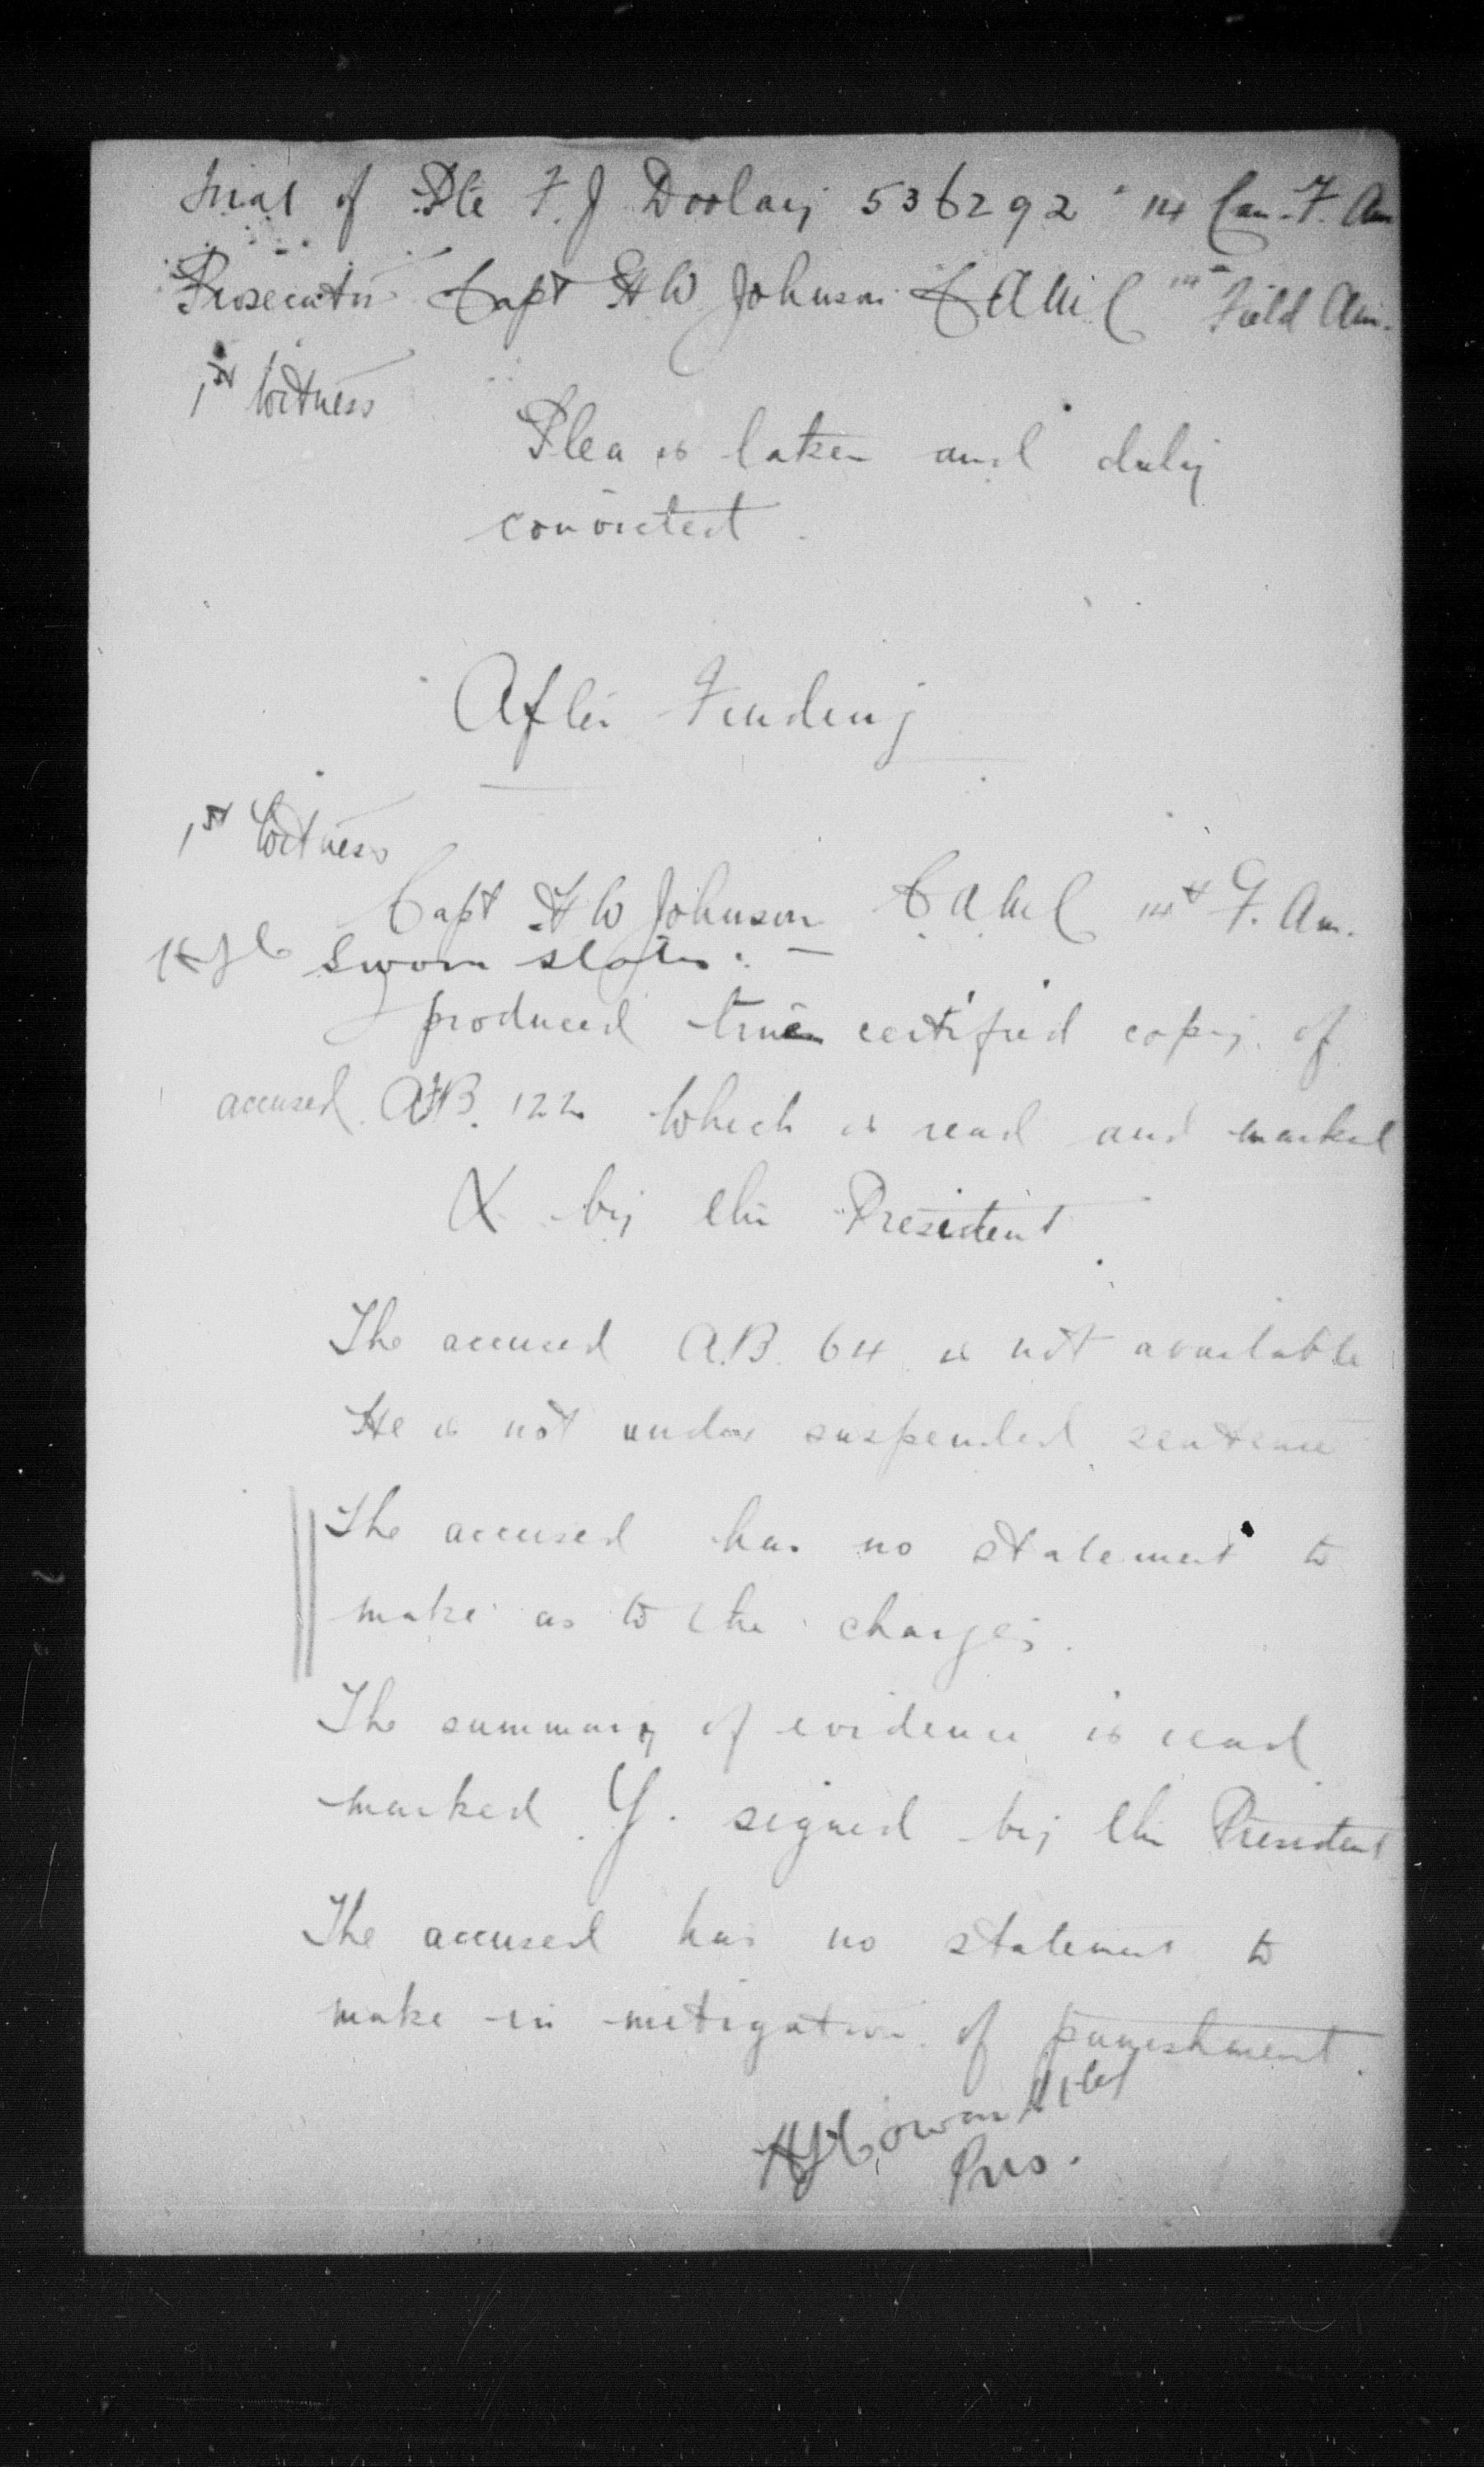 Trial of Pte F. J Doolay 536292 14 Can. F. Am
Prosecutor Capt H W Johnson C A M C 14th Field Am.
1st Witness
Plea is taken and duly
convicted.
After Finding
1st Witness
Capt H W Johnson C A M C 14th F. Am.
HJC Sworn states: —
produced true certified copy of
accused AFB. 122 which is read and marked
X by the President.
The accused A.B. 64 is not available
He is not under suspended sentence
The accused has no statement to
make as to the charges.
The summary of evidence is read
marked Y. signed by the President
The accused has no statement to
make in mitigation of punishment.
HJ Cowan
Pres.